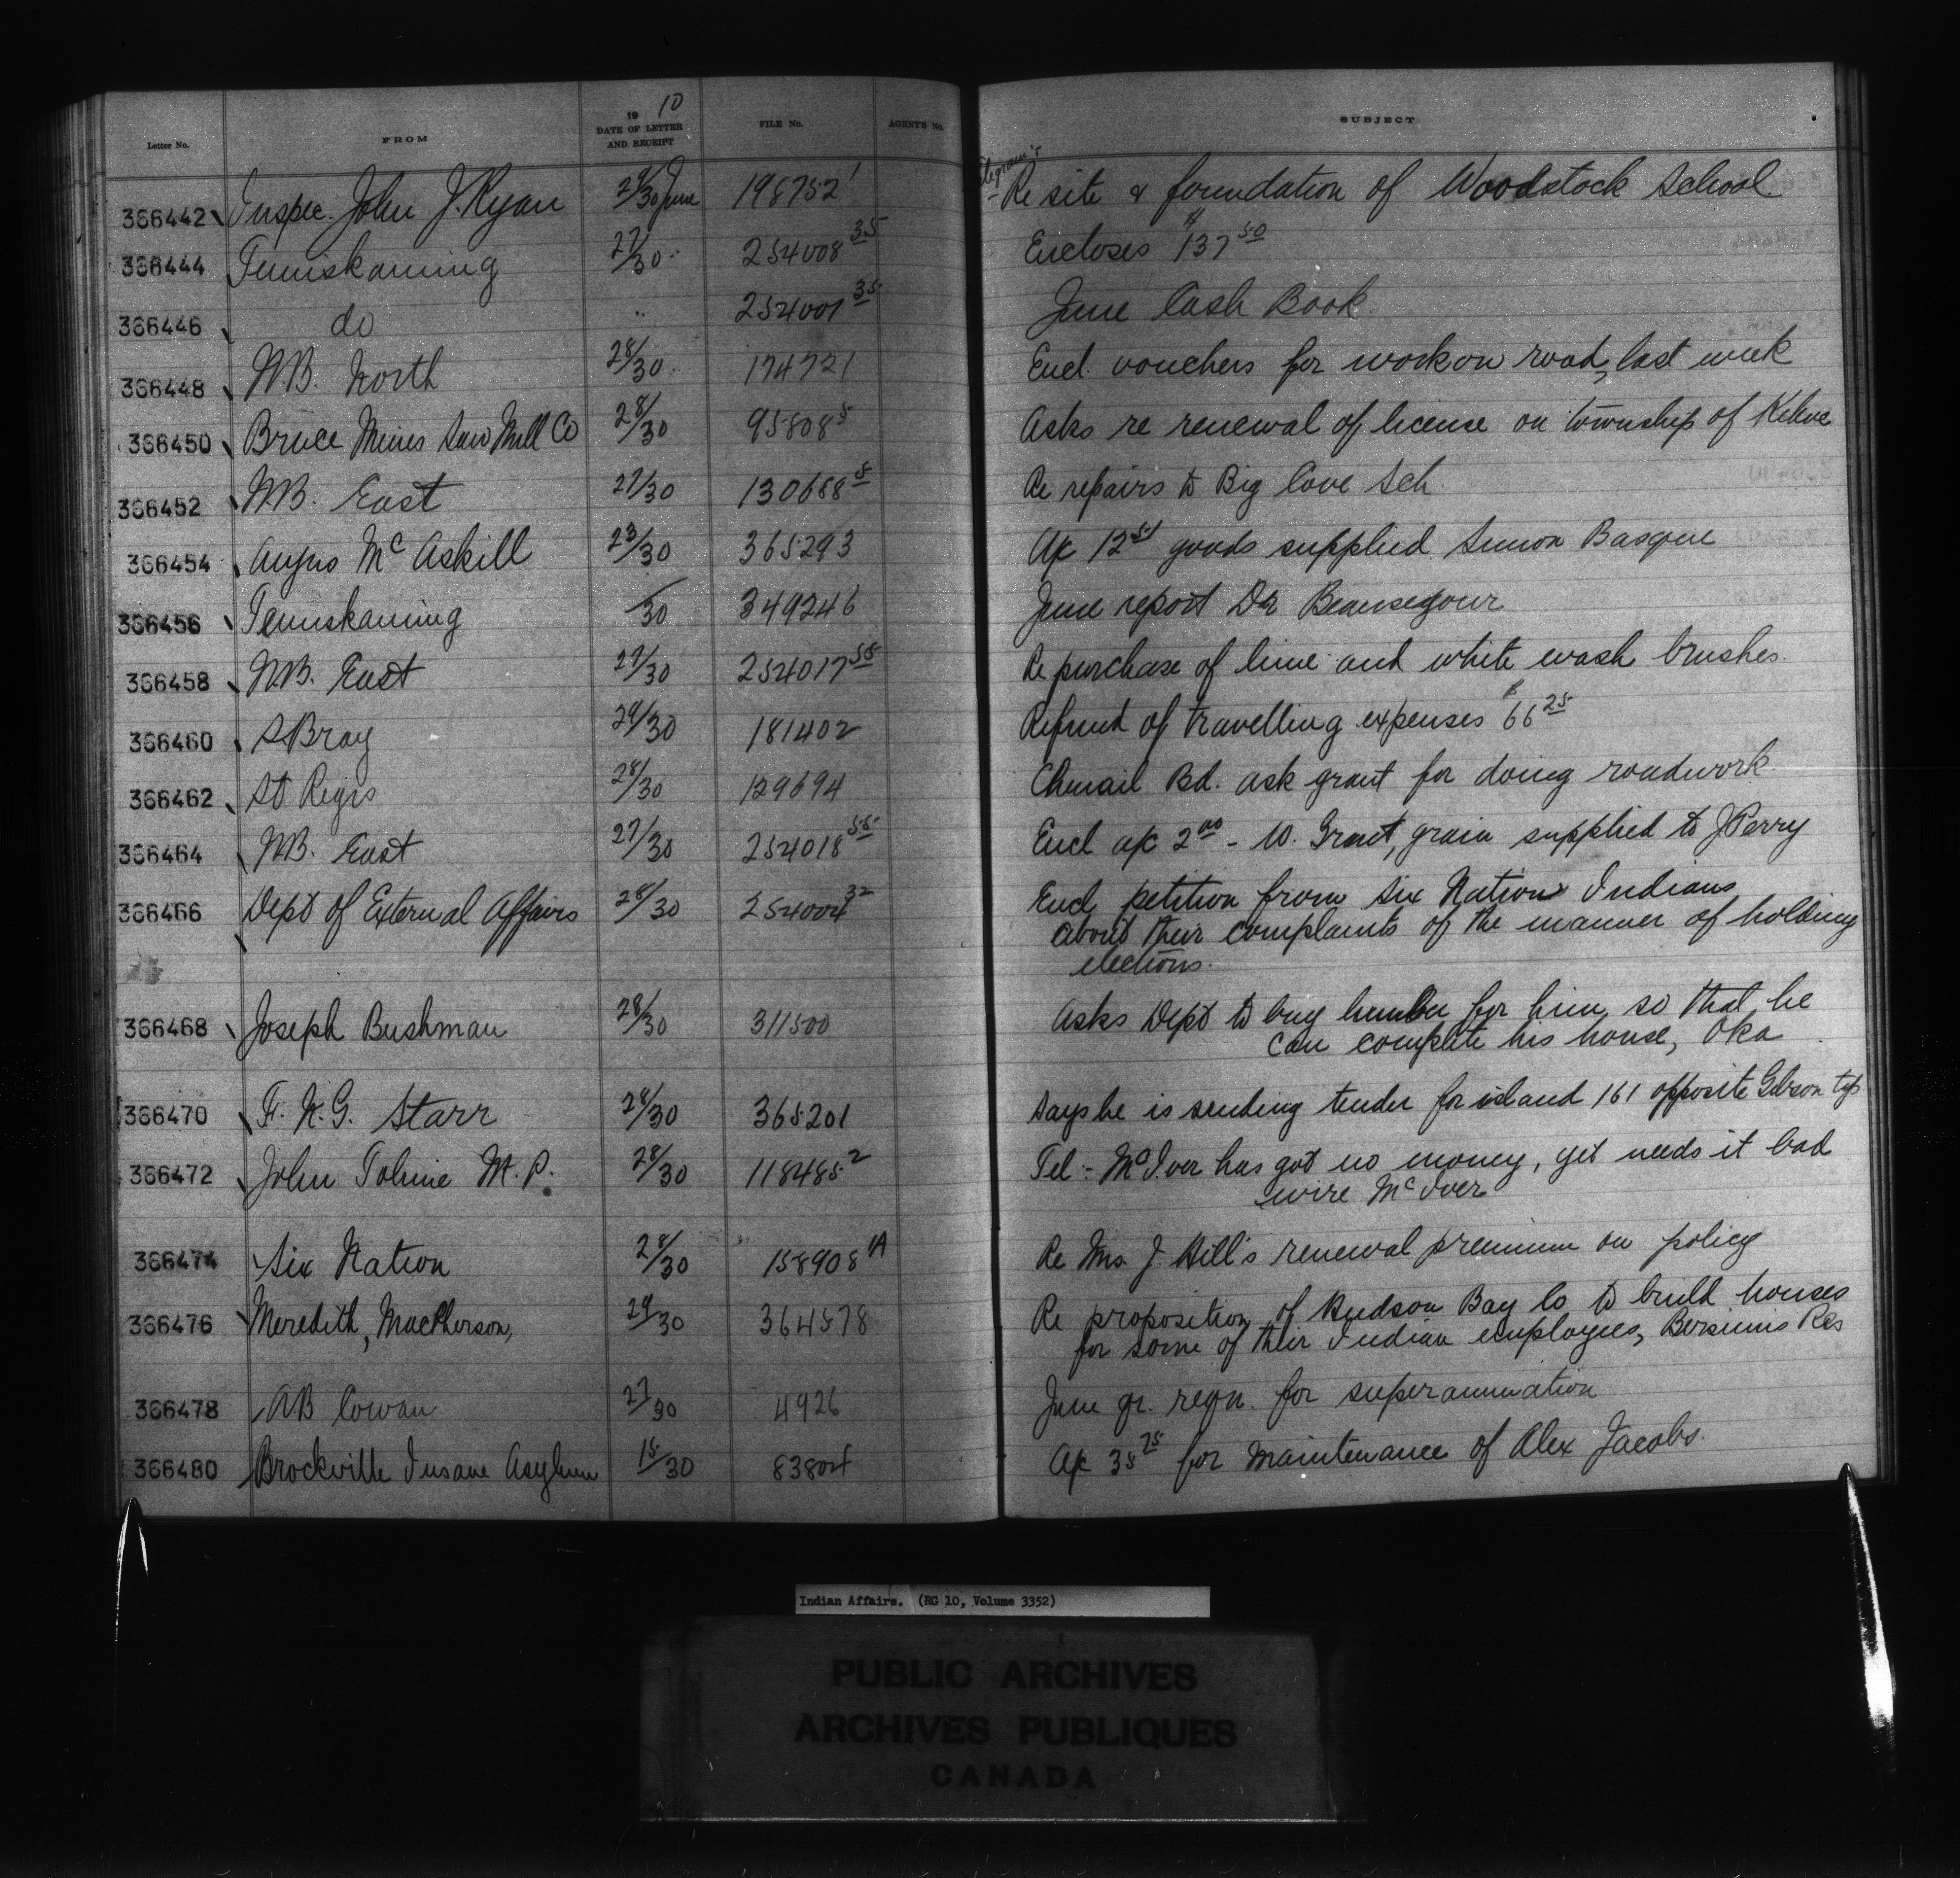 Letter No. FROM 19 10 DATE OF LETTER AND RECEIPT FILE No. AGENT'S No. SUBJECT
366442 Inspec. John J. Ryan 29/30 June 198752 1 Re site & foundation of Woodstock School
366444 Temiskaming 27/30 " 254008 35 Encloses $137 50
366446 do " 254001 35 June Cash Book
366448 N.B. North 28/30 " 174721 Encl. vouchers for work on road, last week
366450 Bruce Mines Saw Mill Co 28/30 95808 5 Asks re renewal of license on township of Kehoe
366452 N.B. East 27/30 130688 5 Re repairs to Big Cove Sch.
366454 Angus McAskill 23/30 365293 A/c 12 51 goods supplied Simon Basque
366456 Temiskaming /30 349246 June report Dr Beausegour
366458 N.B. East 27/30 254017 55 Re purchase of lime and white wash brushes.
366460 S Bray 29/30 181402 Refund of travelling expenses $66 25
366462 St Regis 28/30 129694 Chenail Bd. ask grant for doing roadwork.
366464 N.B. East 27/30 254018 55 Encl a/c 2 00 - W. Grant, grain supplied to J Perry
366466 Dept of External Affairs 28/30 254004 32 Encl petition from Six Nation Indians
about their complaints of the manner of holding
elections.
366468 Joseph Bushman 28/30 311500 Asks Dept to buy lumber for him, so that he
can complete his house, Oka
366470 F. N. G. Starr 28/30 365201 Says he is sending tender for island 161 opposite Gibson tp
366472 John Tolmie M.P. 28/30 118485 2 Tel:- McIver has got no money, yet needs it bad
wire McIver
366474 Six Nation 28/30 158908 1A Re Mrs. J. Hill's renewal premium on policy
366476 Meredith, MacPherson, 29/30 364578 Re proposition of Hudson Bay Co to build houses
for some of their Indian employees, Bersimis Res
366478 AB Cowan 27/30 4926 June qr. reqn. for superannuation
366480 Brockville Insane Asylum 15/30 83804 A/c 35 75 for maintenance of Alex Jacobs.
Indian Affairs. (RG 10, Volume 3352)
PUBLIC ARCHIVES
ARCHIVES PUBLIQUES
CANADA